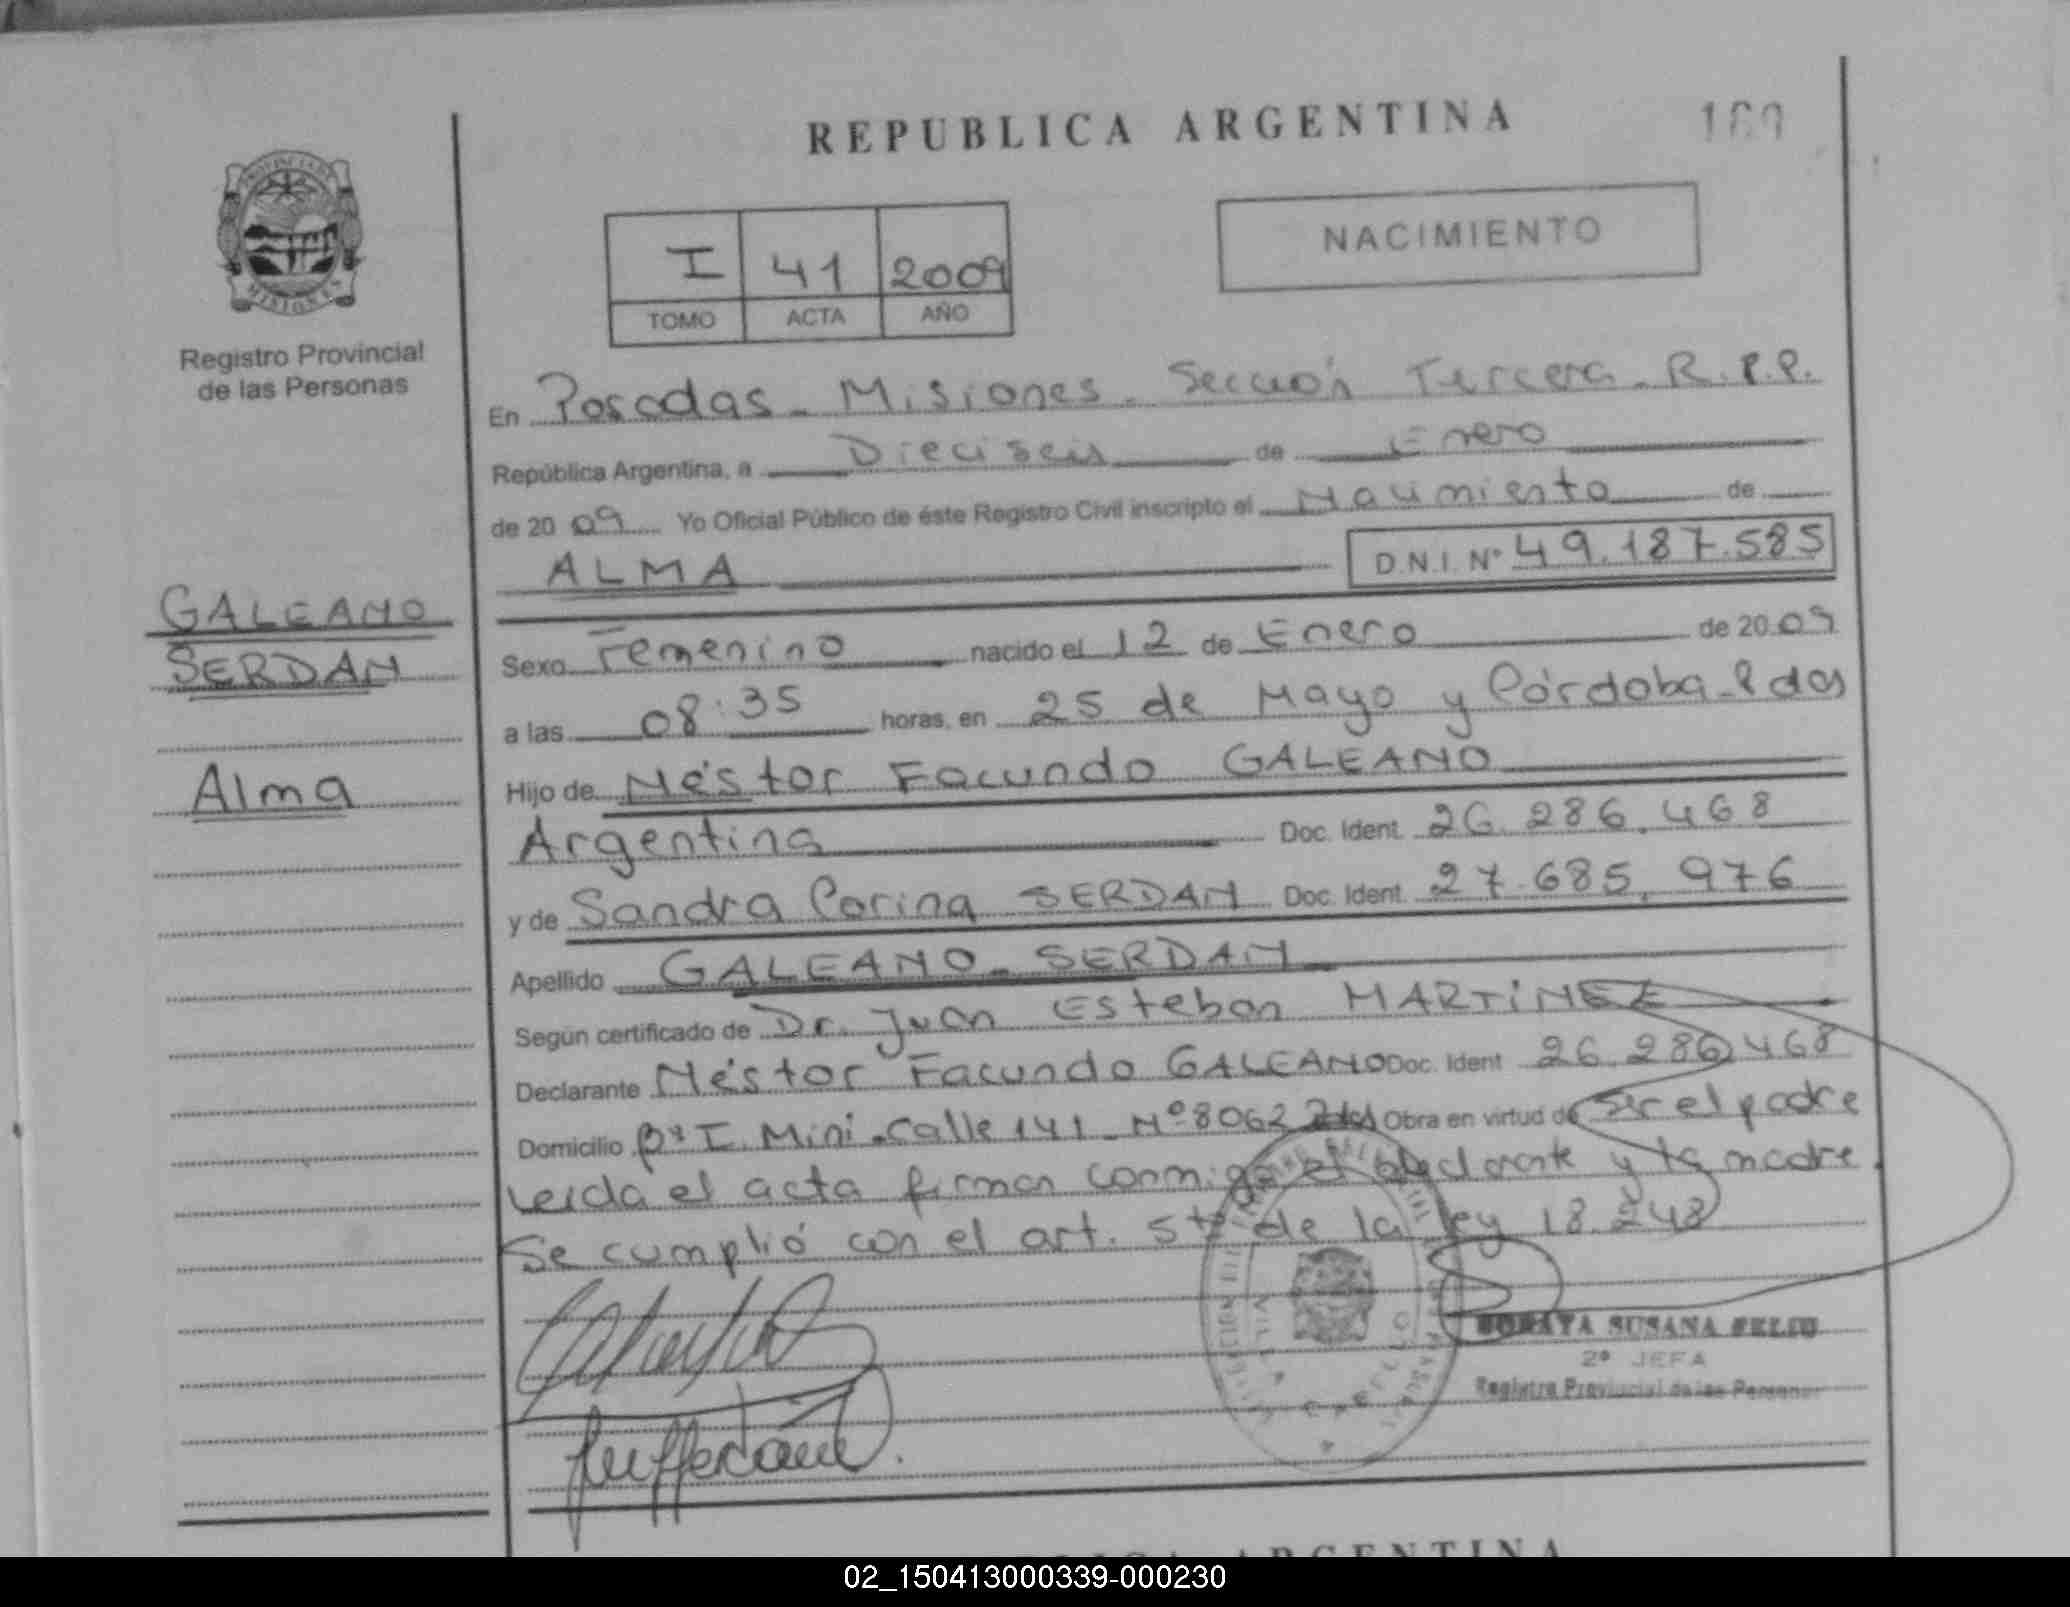 REPUBLICA ARGENTINA
169
PROVINCIA DE MISIONES
Registro Provincial
de las Personas
I 41 2009
TOMO ACTA AÑO
NACIMIENTO
En Posadas - Misiones - Sección Tercera - R.P.P.
República Argentina, a Dieciseis de Enero
de 20 09 Yo Oficial Público de éste Registro Civil inscripto el Nacimiento de
ALMA D.N.I. Nº 49.187.585
GALEANO
SERDAN
Alma
Sexo Femenino nacido el 12 de Enero de 20 09
a las 08:35 horas, en 25 de Mayo y Córdoba - Pdas
Hijo de Néstor Facundo GALEANO
Argentina Doc. Ident. 26.286.468
y de Sandra Corina SERDAN Doc. Ident. 27.685.976
Apellido GALEANO - SERDAN
Según certificado de Dr. Juan Esteban MARTINEZ
Declarante Néstor Facundo GALEANO Doc. Ident 26.286.468
Domicilio Bº I. Mini - Calle 141 - Nº 8062 Obra en virtud de Ser el padre
Leida el acta firman conmigo el declarante y la madre.
Se cumplió con el art. 5to de la ley 18.248
SUSANA FELIU
2º JEFA
Registro Provincial de las Personas
ARGENTINA
02_150413000339-000230